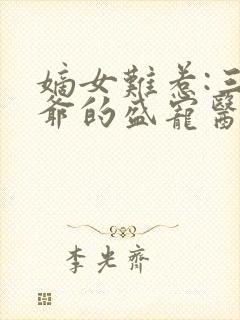 嫡女難惹:三
爺的盛寵醫
李光齊